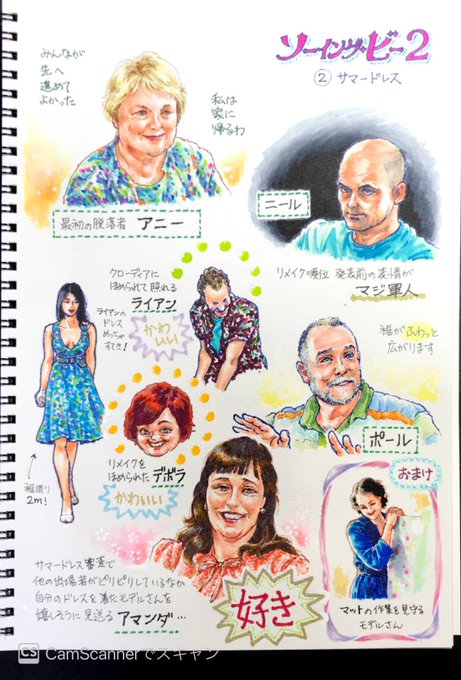 ソーイング・ビー2
② サマードレス
みんなが
先へ
進めて
よかった
私は
家に
帰るわ
最初の脱落者 アニー
ニール
リメイク順位 発表前の表情が
マジ軍人
クローディアに
ほめられて照れる
ライアン
かわいい
ライアンの
ドレス
めっちゃ
すてき!
裾周り
2m!
裾がふわっと
広がります
ポール
リメイクを
ほめられたデボラ
かわいい
サマードレス審査で
他の出場者がピリピリしているなか
自分のドレスを着たモデルさんを
嬉しそうに見送るアマンダ…
好き
おまけ
マットの作業を見守る
モデルさん
CS CamScannerでスキャン